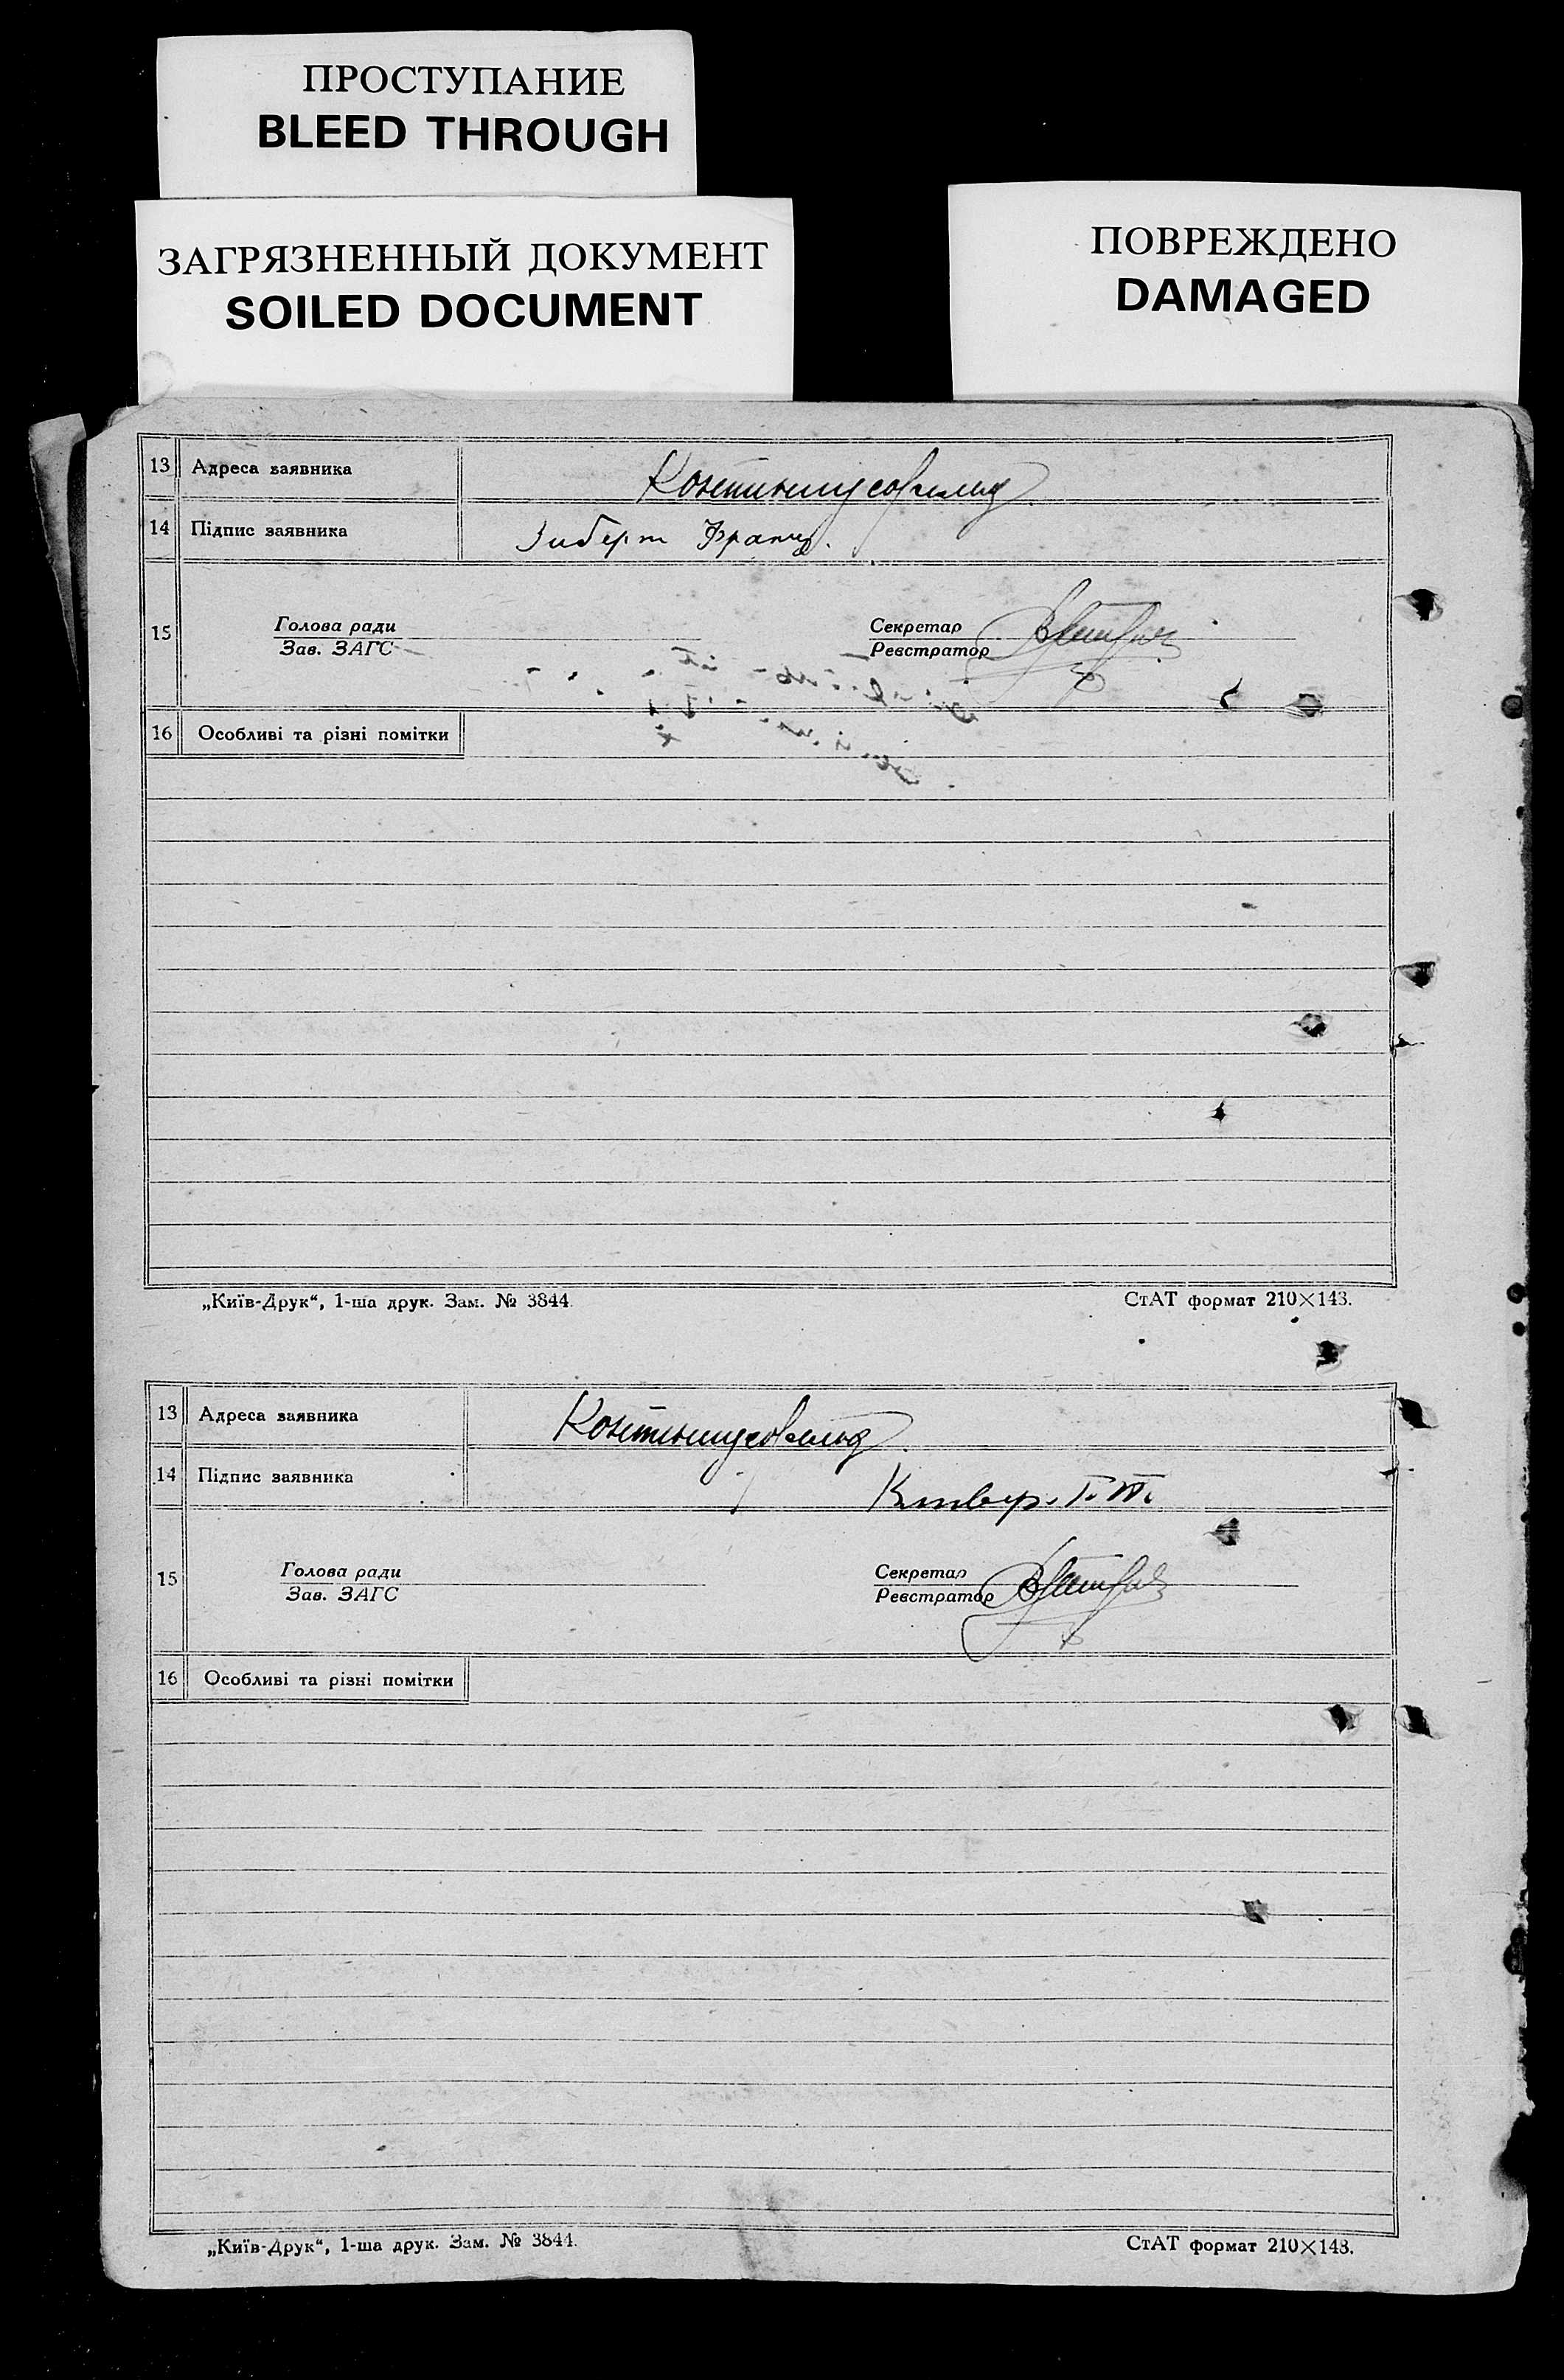 ПРОСТУПАНИЕ
BLEED THROUGH
ЗАГРЯЗНЕННЫЙ ДОКУМЕНТ
SOILED DOCUMENT
ПОВРЕЖДЕНО
DAMAGED
13 Адреса заявника
14 Підпис заявника Зиберт Франц.
15 Голова ради Секретар
Зав. ЗАГС Реєстратор
16 Особливі та різні помітки
„Київ-Друк“, 1-ша друк. Зам. № 3844. СтАТ формат 210×143.
13 Адреса заявника
14 Підпис заявника
15 Голова ради Секретар
Зав. ЗАГС Реєстратор
16 Особливі та різні помітки
„Київ-Друк“, 1-ша друк. Зам. № 3844. СтАТ формат 210×143.